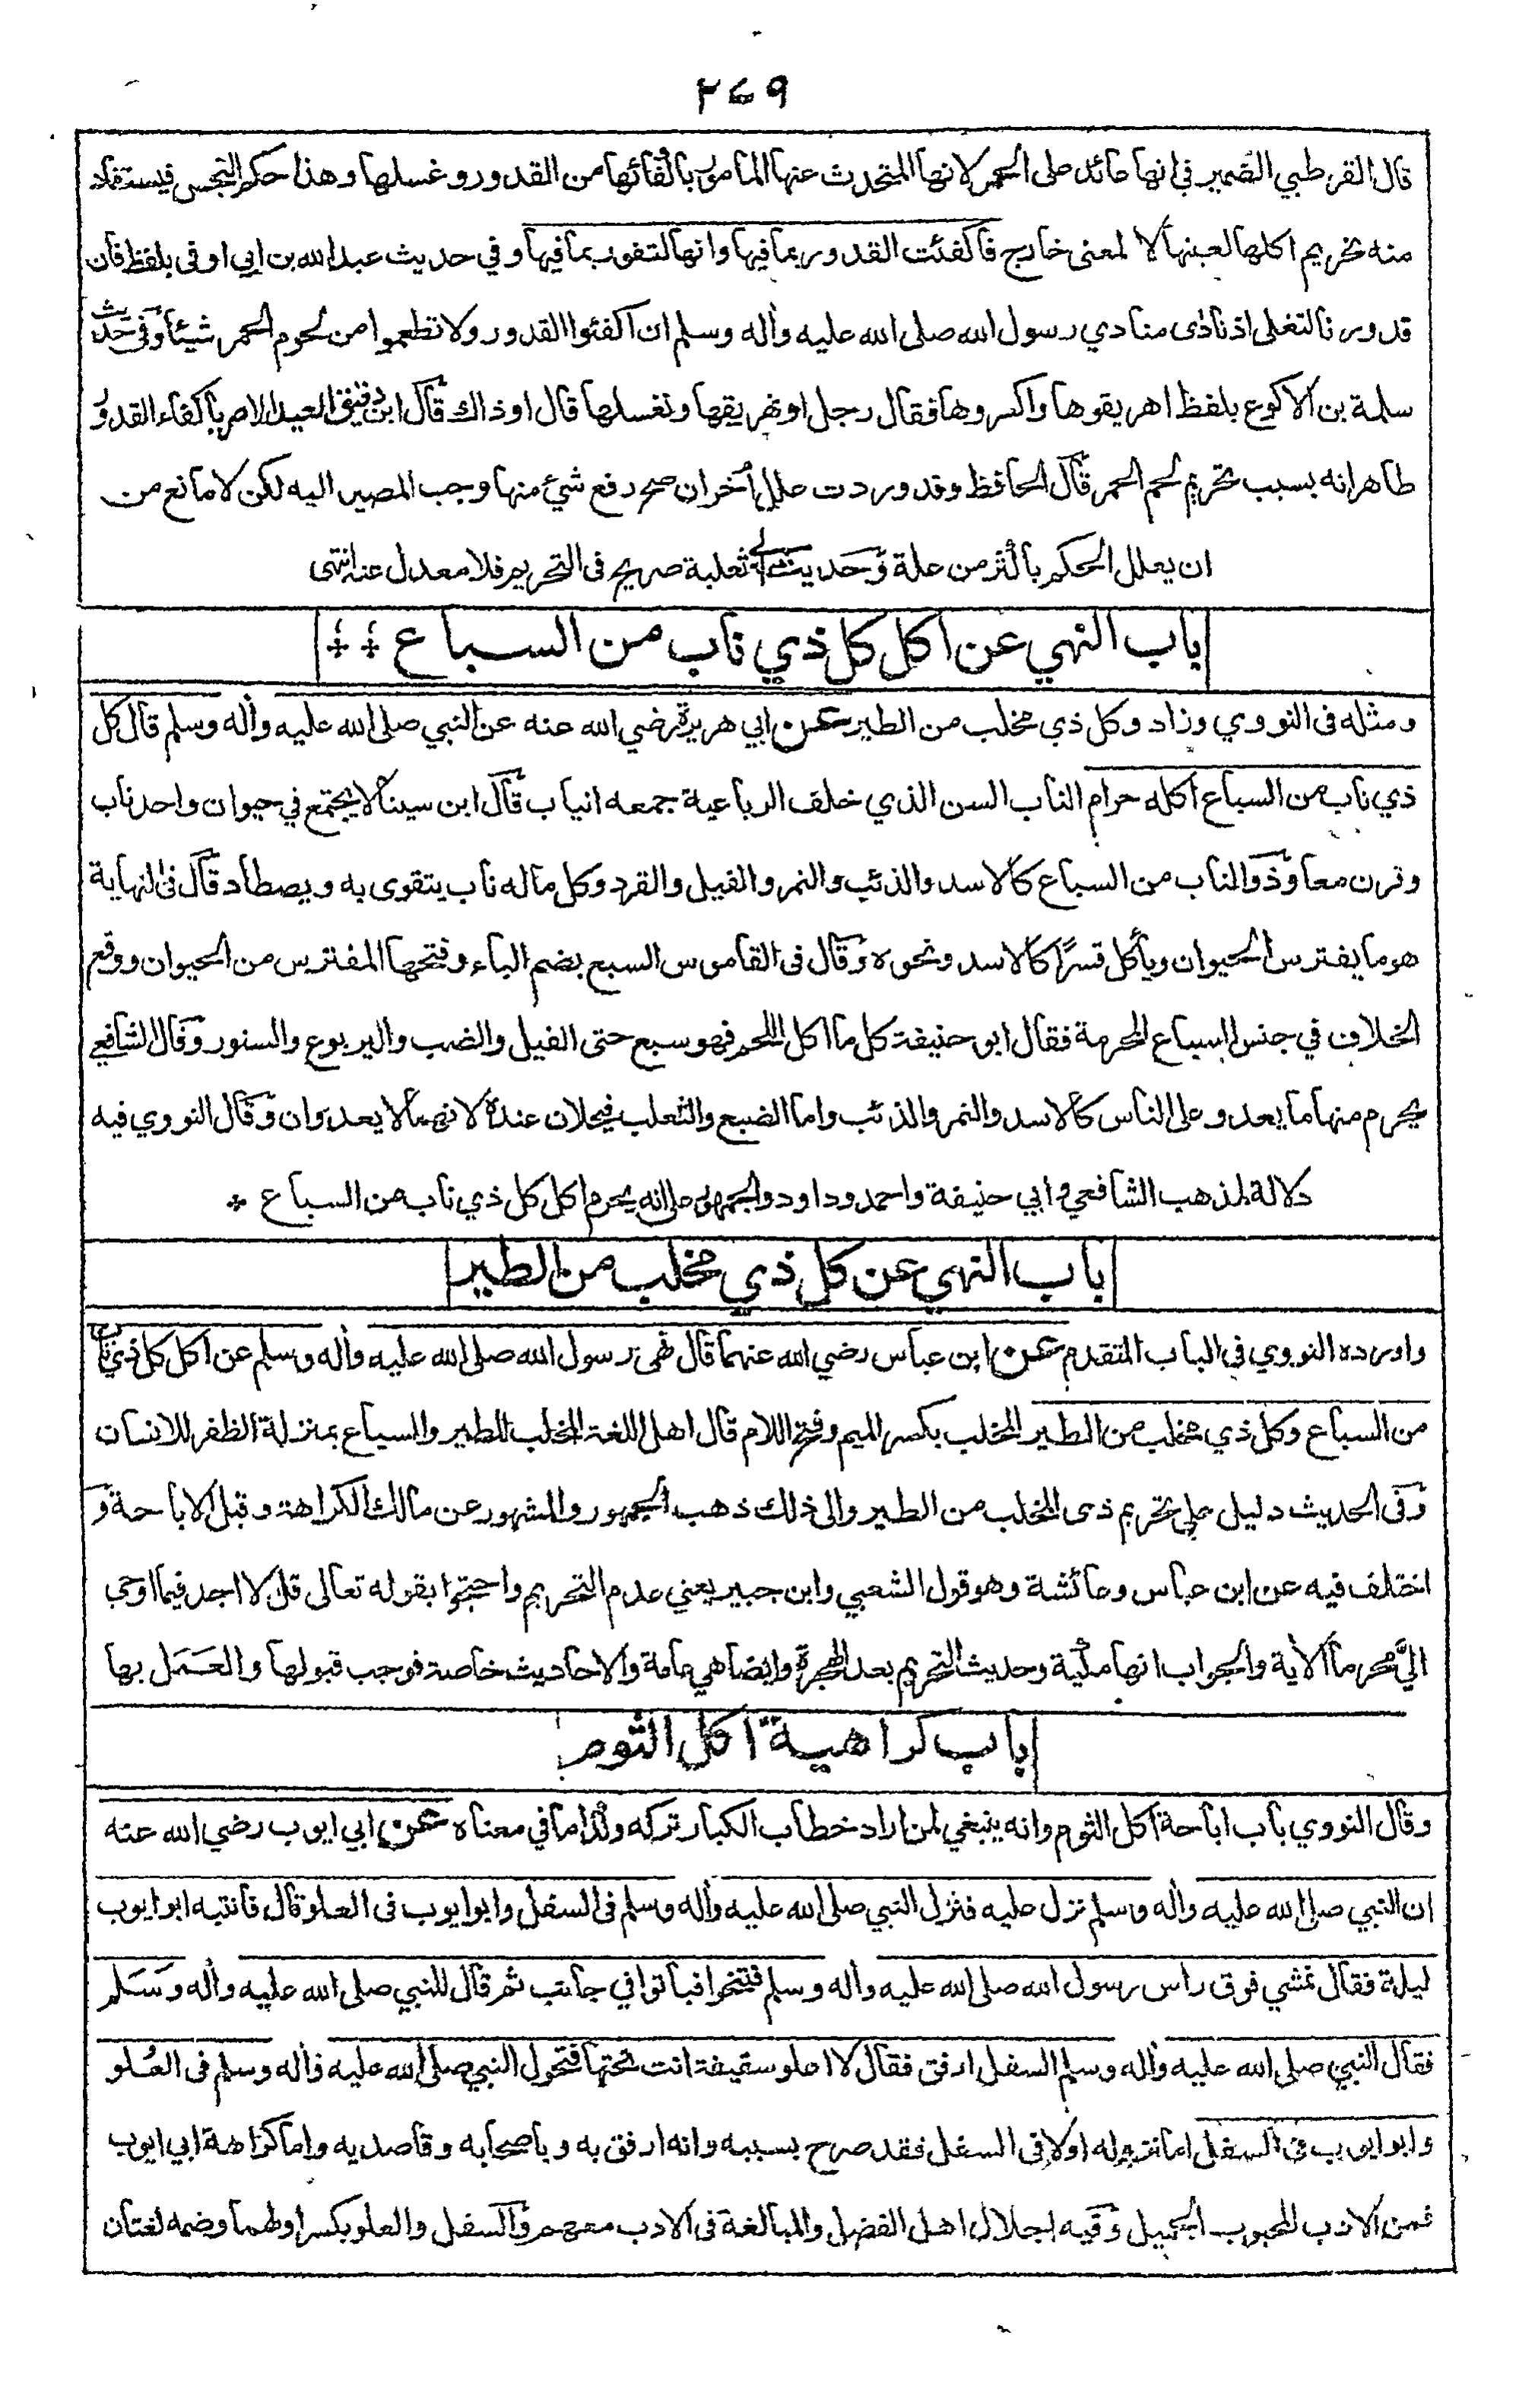 ٢٦٩
قال القرطبي الضمير في انها عائد على الحمر لانها المتحدث عنها المامور بالقائها من القدور وغسلها وهذا حكم النجس فيستفاد
منه تحريم اكلها لعينها لا لمعنى خارج فاكفئت القدور بما فيها وانها لتفور بما فيها وفي حديث عبد الله بن ابي اوفى بلفظ فان
قدورنا لتغلي اذ نادى منادي رسول الله صلى الله عليه وأله وسلم ان اكفئوا القدور ولا تطعموا من لحوم الحمر شيئا وفي حديث
سلمة بن الاكوع بلفظ اهريقوها واكسروها فقال رجل او نهريقها ونغسلها قال او ذاك قال ابن دقيق العيد الامر باكفاء القدور
ظاهر انه بسبب تحريم لحم الحمر قال الحافظ وقد وردت علل أخر ان صح رفع شئ منها وجب المصير اليه لكن لا مانع من
ان يعلل الحكم باكثر من علة وحديث ابي ثعلبة صريح في التحريم فلا معدل عنه انتهى
باب النهي عن اكل كل ذي ناب من السباع
ومثله في النووي وزاد وكل ذي مخلب من الطير عن ابي هريرة رضي الله عنه عن النبي صلى الله عليه وأله وسلم قال كل
ذي ناب من السباع اكله حرام الناب السن الذي خلف الرباعية جمعه انياب قال ابن سينا لا يجتمع في حيوان واحد ناب
وقرن معا وذو الناب من السباع كالاسد والذئب والنمر والفيل والقرد وكل ما له ناب يتقوى به ويصطاد قال في النهاية
هو ما يفترس الحيوان ويأكل قسرًا كالاسد ونحوه وقال في القاموس السبع بضم الباء وفتحها المفترس من الحيوان ووقع
الخلاف في جنس السباع المحرمة فقال ابو حنيفة كل ما اكل اللحم فهو سبع حتى الفيل والضب واليربوع والسنور وقال الشافعي
يحرم منها ما يعدو على الناس كالاسد والنمر والذئب واما الضبع والثعلب فيحلان عنده لانهما لا يعدوان وقال النووي فيه
دلالة لمذهب الشافعي وابي حنيفة واحمد وداود والجمهور على انه يحرم اكل كل ذي ناب من السباع *
باب النهي عن كل ذي مخلب من الطير
واورده النووي في الباب المتقدم عن ابن عباس رضي الله عنهما قال نهى رسول الله صلى الله عليه وأله وسلم عن اكل كل ذي ناب
من السباع وكل ذي مخلب من الطير المخلب بكسر الميم وفتح اللام قال اهل اللغة المخلب للطير والسباع بمنزلة الظفر للانسان
وفي الحديث دليل على تحريم ذي المخلب من الطير والى ذلك ذهب الجمهور والمشهور عن مالك الكراهة وقيل الاباحة و
اختلف فيه عن ابن عباس وعائشة وهو قول الشعبي وابن جبير يعني عدم التحريم واحتجوا بقوله تعالى قل لا اجد فيما اوحي
اليَّ محرما الأية والجواب انها مكية وحديث التحريم بعد الهجرة وايضا هي عامة والاحاديث خاصة فوجب قبولها والعمل بها
باب كراهية اكل الثوم
وقال النووي باب اباحة اكل الثوم وانه ينبغي لمن اراد خطاب الكبار تركه وكذا ما في معناه عن ابي ايوب رضي الله عنه
ان النبي صلى الله عليه وأله وسلم نزل عليه فنزل النبي صلى الله عليه وأله وسلم في السفل وابو ايوب في العلو قال فانتبه ابو ايوب
ليلة فقال نمشي فوق راس رسول الله صلى الله عليه وأله وسلم فتنحوا فباتوا في جانب ثم قال للنبي صلى الله عليه وأله وسلم
فقال النبي صلى الله عليه وأله وسلم السفل ارفق فقال لا اعلو سقيفة انت تحتها فتحول النبي صلى الله عليه وأله وسلم في العُلو
وابو ايوب في السفل اما نزوله اولا في السفل فقد صرح بسببه وانه ارفق به وباصحابه وقاصديه واما كراهة ابي ايوب
فمن الادب المحبوب الجميل وفيه اجلال اهل الفضل والمبالغة في الادب معهم والسفل والعلو بكسر اولهما وضمه لغتان